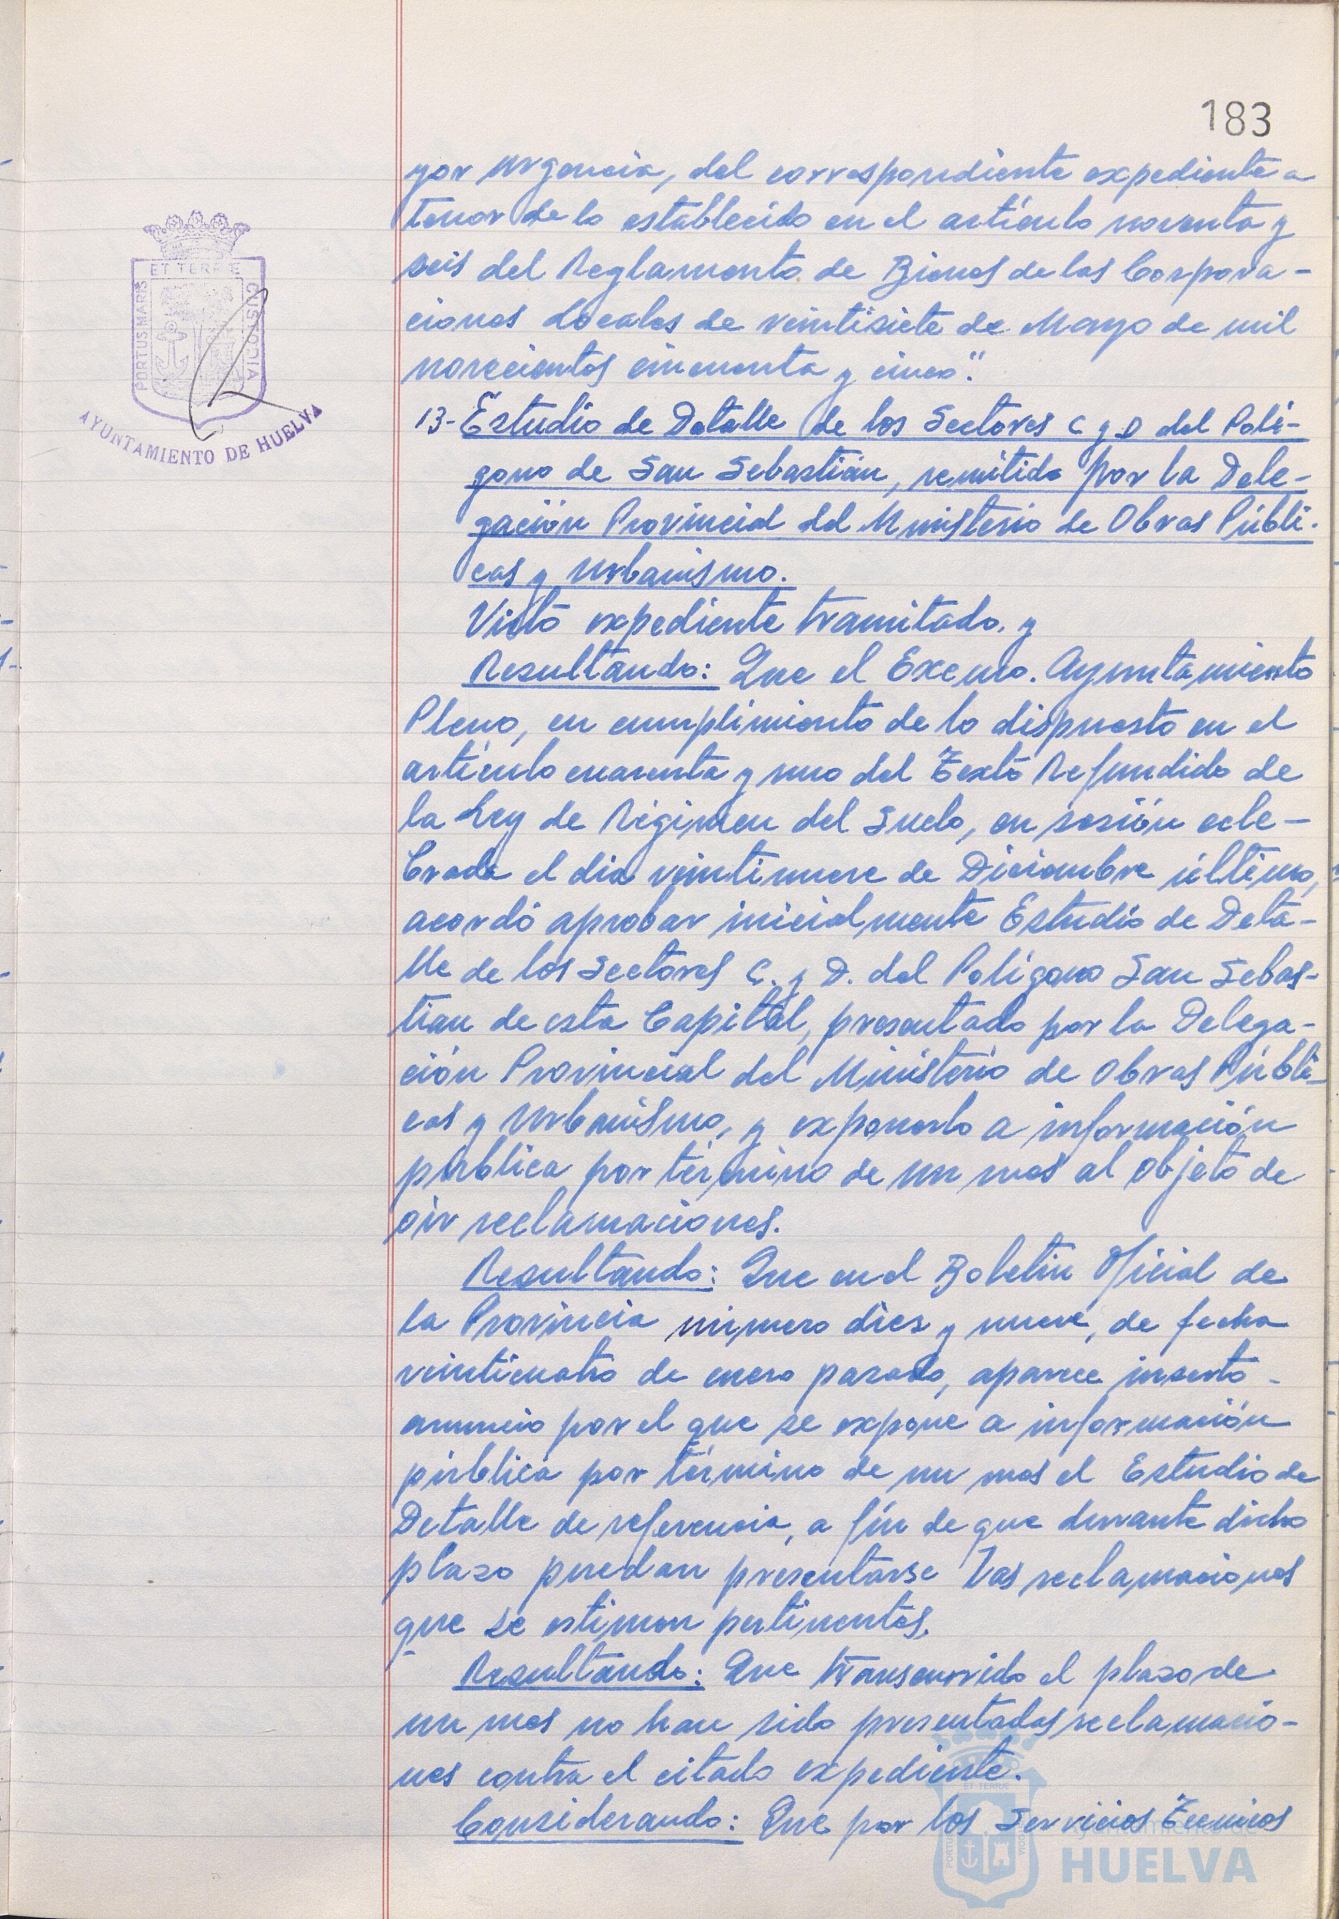 183
por urgencia, del correspondiente expediente a
tenor de lo establecido en el artículo noventa y
seis del Reglamento de Bienes de las Corpora-
ciones Locales de veintisiete de Mayo de mil
novecientos cincuenta y cinco."
13- Estudio de Detalle de los Sectores C y D del Polí-
gono de San Sebastián, remitido por la Dele-
gación Provincial del Ministerio de Obras Públi-
cas y Urbanismo.
Visto expediente tramitado, y
Resultando: Que el Excmo. Ayuntamiento
Pleno, en cumplimiento de lo dispuesto en el
artículo cuarenta y uno del Texto Refundido de
la Ley de Régimen del Suelo, en sesión cele-
brada el dia veintinueve de Diciembre último,
acordó aprobar inicialmente Estudio de Deta-
lle de los Sectores C. y D. del Polígono San Sebas-
tian de esta Capital, presentado por la Delega-
ción Provincial del Ministerio de Obras Públi-
cas y Urbanismo, y exponerlo a información
pública por término de un mes al objeto de
oir reclamaciones.
Resultando: Que en el Boletin Oficial de
la Provincia número diez y nueve, de fecha
veinticuatro de enero pasado, aparece inserto
anuncio por el que se expone a información
pública por término de un mes el Estudio de
Detalle de referencia, a fin de que durante dicho
plazo puedan presentarse las reclamaciones
que se estimen pertinentes.
Resultando: Que transcurrido el plazo de
un mes no han sido presentadas reclamacio-
nes contra el citado expediente.
Considerando: Que por los Servicios Tecnicos
PORTUS MARIS
ET TERRE
CUSTODIA
AYUNTAMIENTO DE HUELVA
Ayuntamiento de
HUELVA